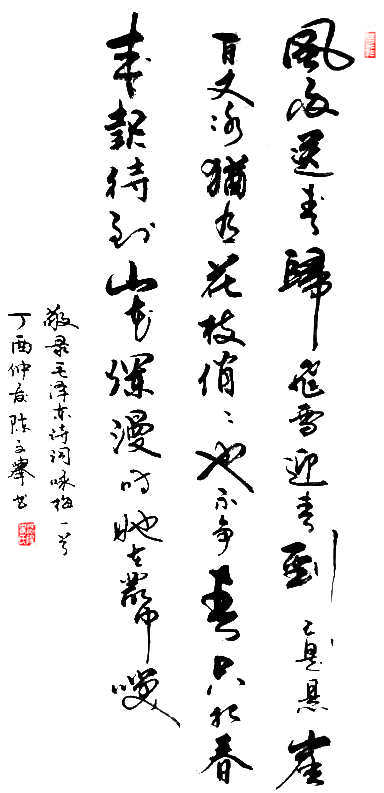 風雨送春歸飛雪迎春到已是悬崖
百丈冰猶有花枝俏〻也不争春只把春
来報待到山花爛漫时她在叢中笑
敬录毛泽东诗词咏梅一首
丁酉仲夏陈文舉书